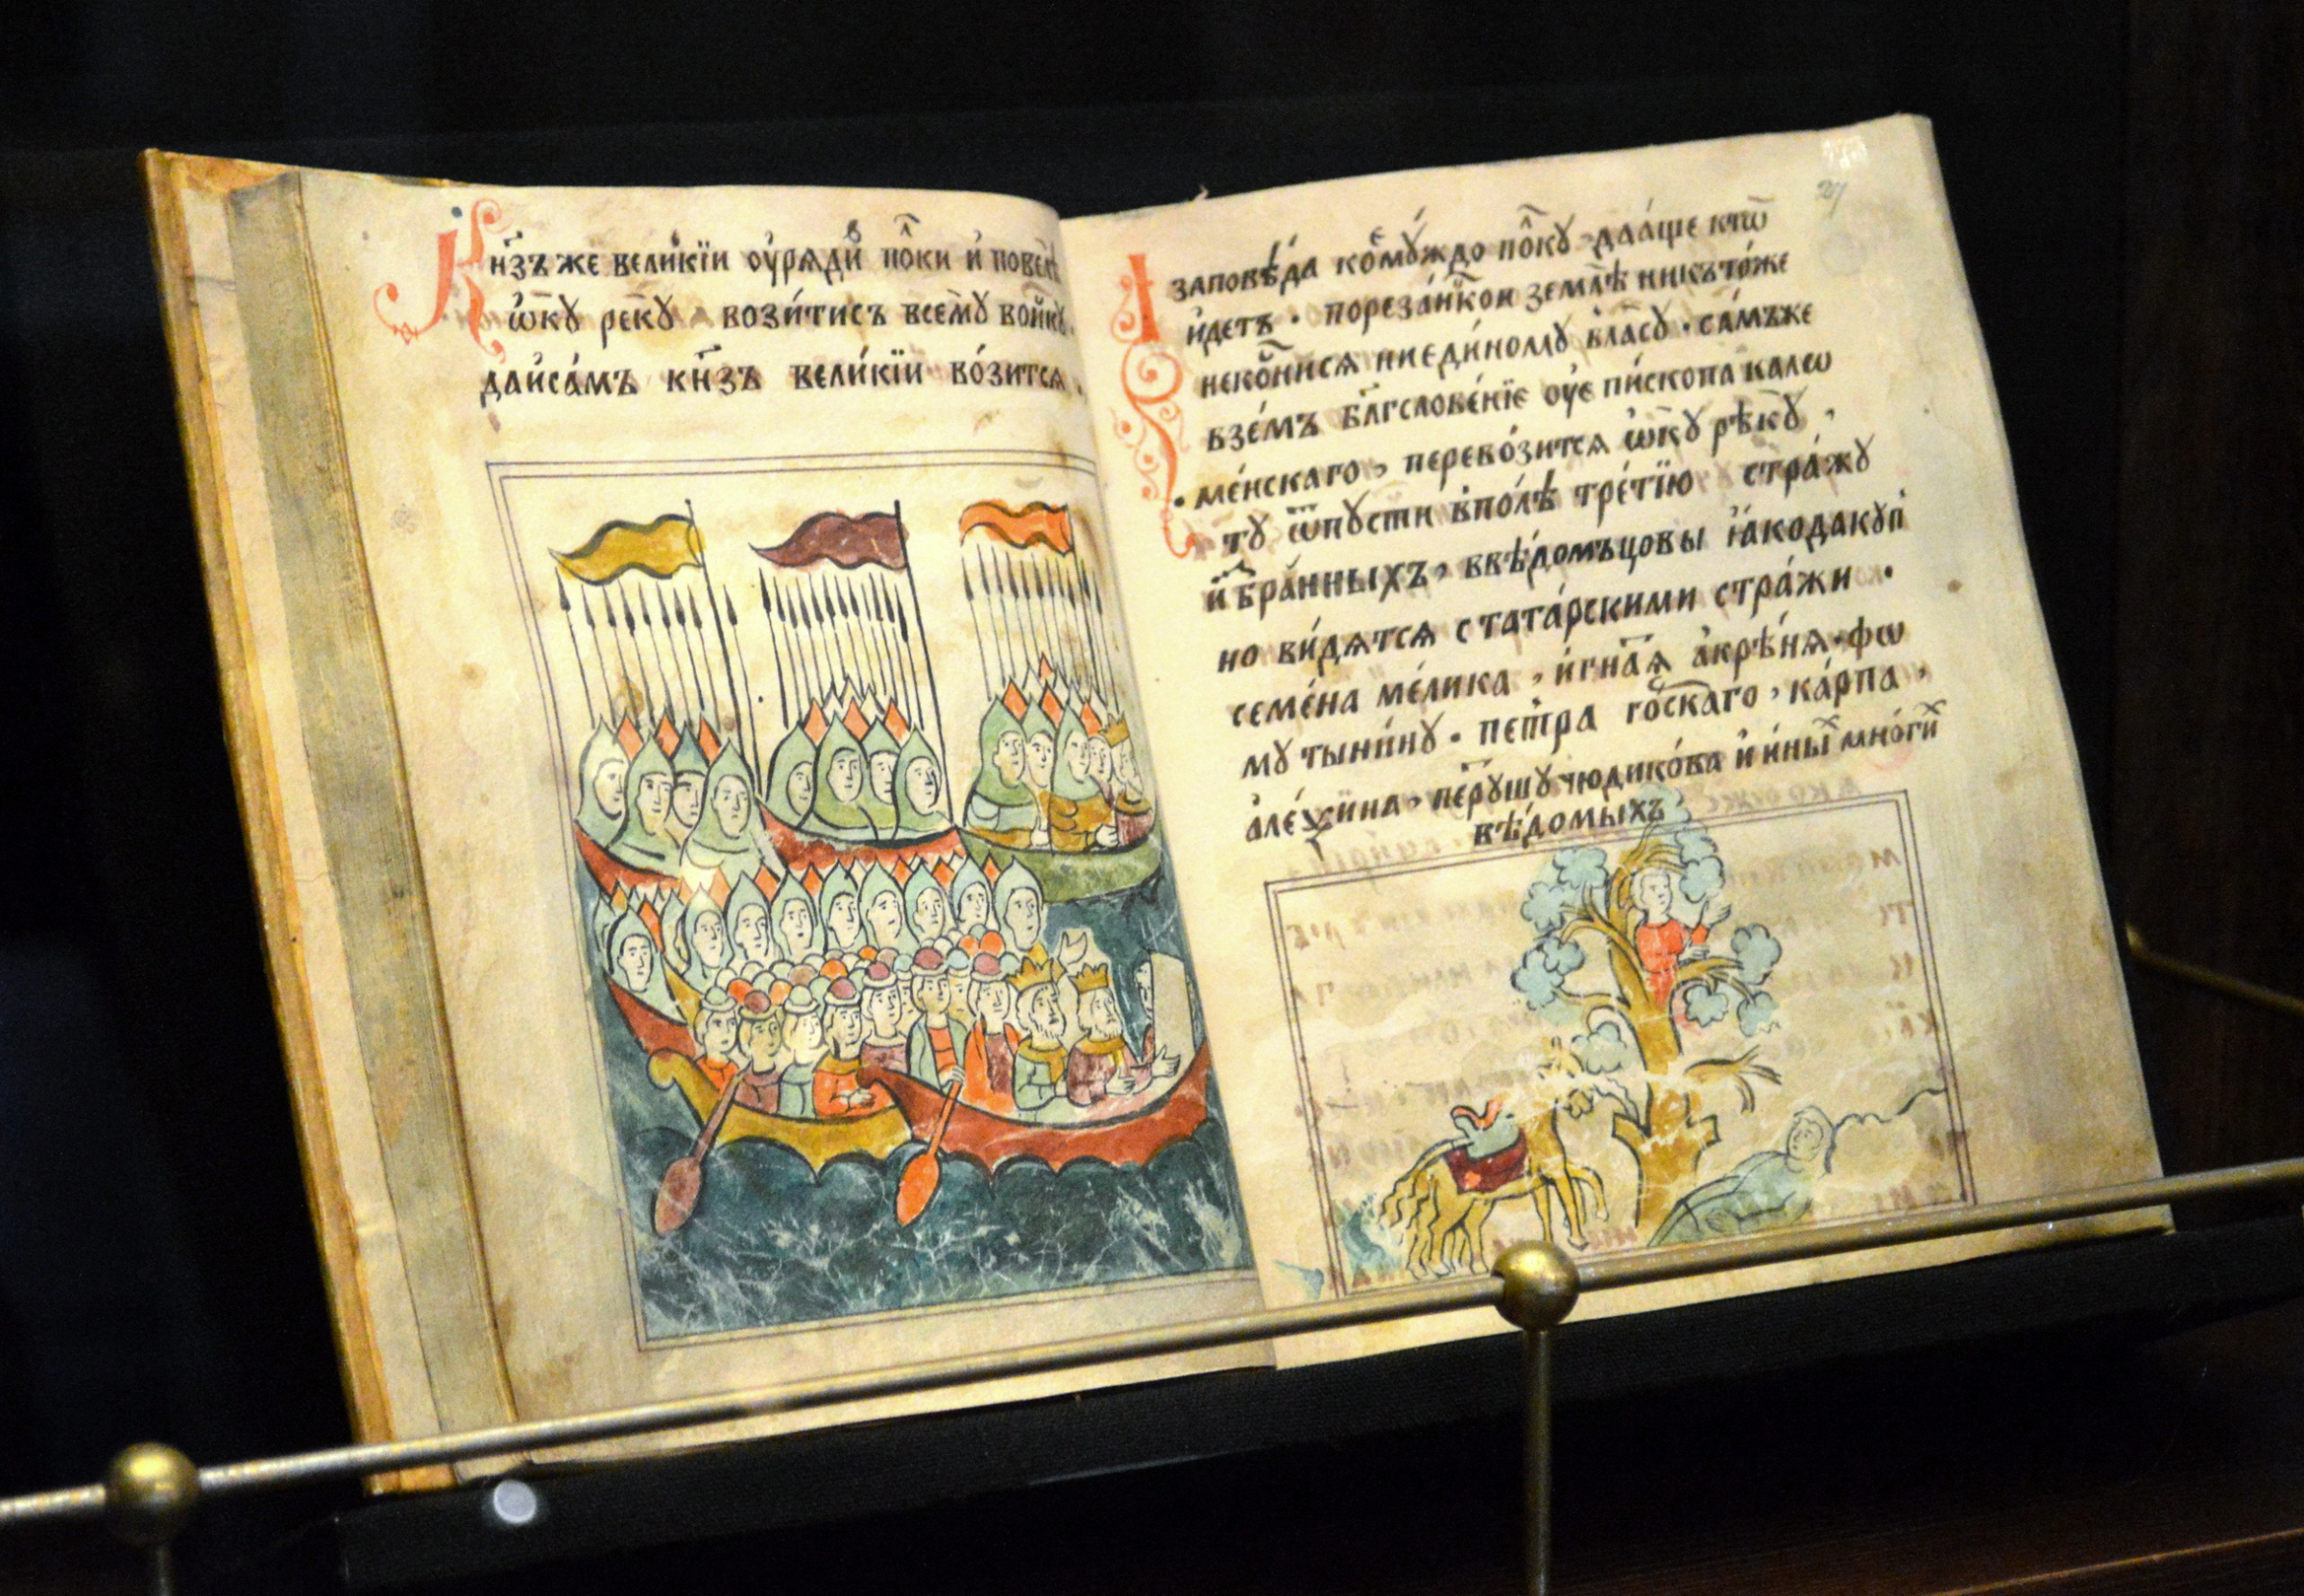 Кн҃зъ же великїи ѹ҆ряди пол҆ки и҆ повелѣ
ѡ҆кꙋ рекꙋ вози́тисъ всемꙋ войнꙋ.
да и҆са́мъ кн҃зъ вели́кїи во́зится.
заповѣ́да ко́мꙋждо по́лкꙋ да а́ще кто̀
и҆детъ · порезан́скои землѣ́ никъто́же
некосни́ся ниеди́номꙋ вла́сꙋ · са́мъже
взе́мъ бл҃гслове́нїе ѹ҆епи́скопа кало
ме́нскаго, перево́зится ѡ҆кꙋ рѣкꙋ,
тꙋ ѿпꙋсти впо́лѣ тре́тїю стра́жꙋ
и҆збра́нныхъ, ввѣ́домъцовы ꙗ҆кодакꙋп
но ви́дятся стата́рскими стра́жи ·
семе́на ме́лика, и҆гна́тя а҆крѣ́ня · фо
мꙋ тыни́нꙋ · петра го́рскаго, ка́рпа,
а҆ле́ѯина, пе́трꙋшꙋ чюдико́ва и҆ и҆ны́х мно́гих
вѣ́домыхъ